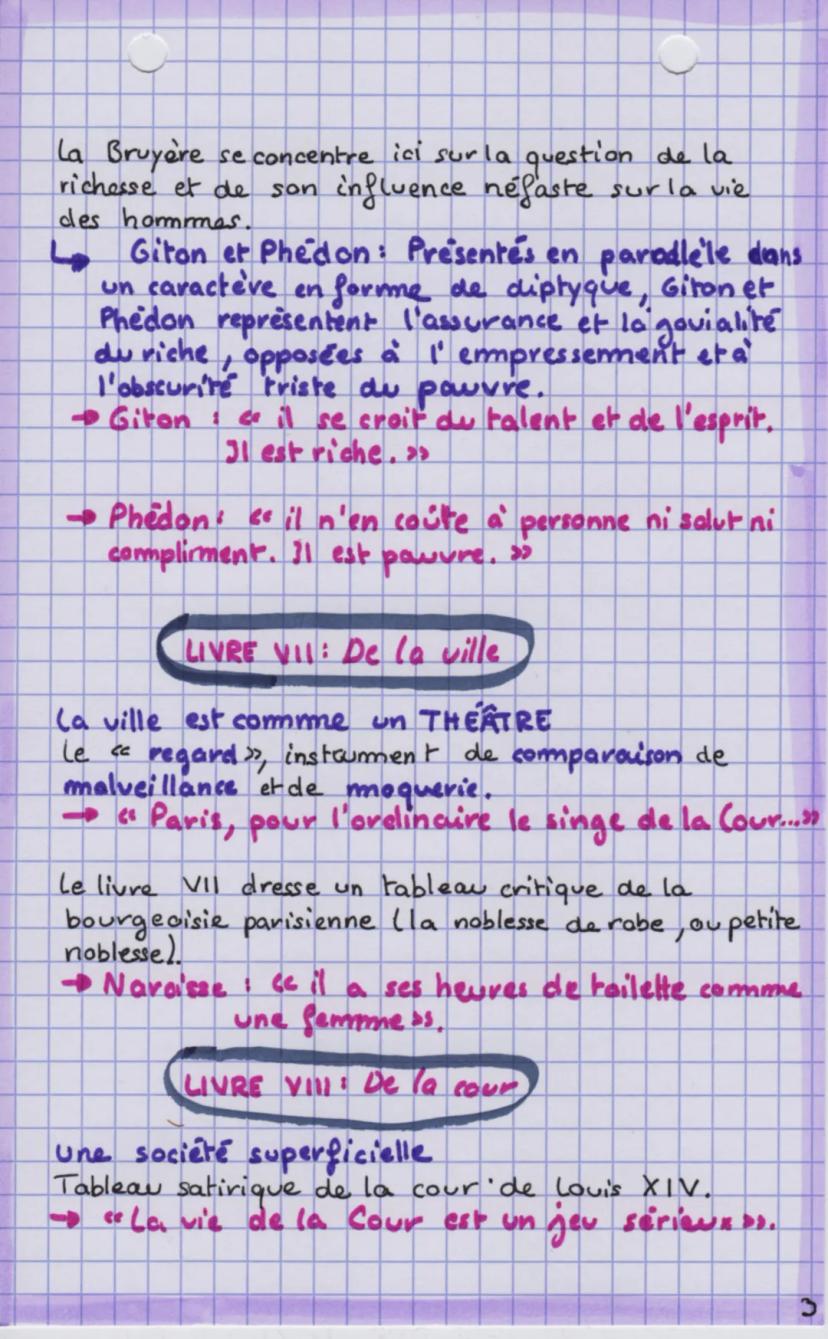 La Bruyère se concentre ici sur la question de la
richesse et de son influence néfaste sur la vie
des hommes.
↳ Giton et Phédon : Présentés en parallèle dans
un caractère en forme de diptyque, Giton et
Phédon représentent l'assurance et la jovialité
du riche, opposées à l'empressement et à
l'obscurité triste du pauvre.
→ Giton : « il se croit du talent et de l'esprit.
Il est riche. »
→ Phédon : « il n'en coûte à personne ni salut ni
compliment. Il est pauvre. »
LIVRE VII : De la ville
La ville est comme un THÉÂTRE
Le « regard », instrument de comparaison de
malveillance et de moquerie.
→ « Paris, pour l'ordinaire le singe de la Cour... »
Le livre VII dresse un tableau critique de la
bourgeoisie parisienne (la noblesse de robe, ou petite
noblesse).
→ Narcisse : « il a ses heures de toilette comme
une femme ».
LIVRE VIII : De la cour
Une société superficielle
Tableau satirique de la cour de Louis XIV.
→ « La vie de la Cour est un jeu sérieux ».
3